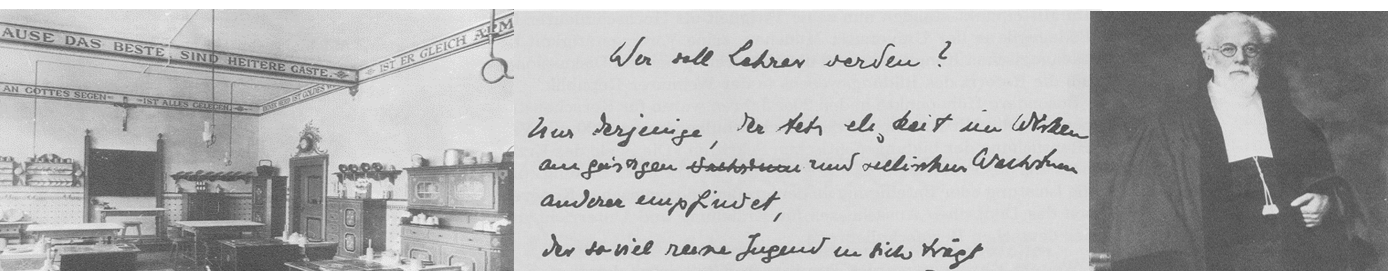 AUSE DAS BESTE SIND HEITERE GÄSTE.
IST ER GLEICH ARM
AN GOTTES SEGEN IST ALLES GELEGEN
Wer soll Lehrer werden?
Nur derjenige, der stets im Wirken
am geistigen und seelischen Wachstum
anderer empfindet,
der so viel reine Jugend in sich trägt